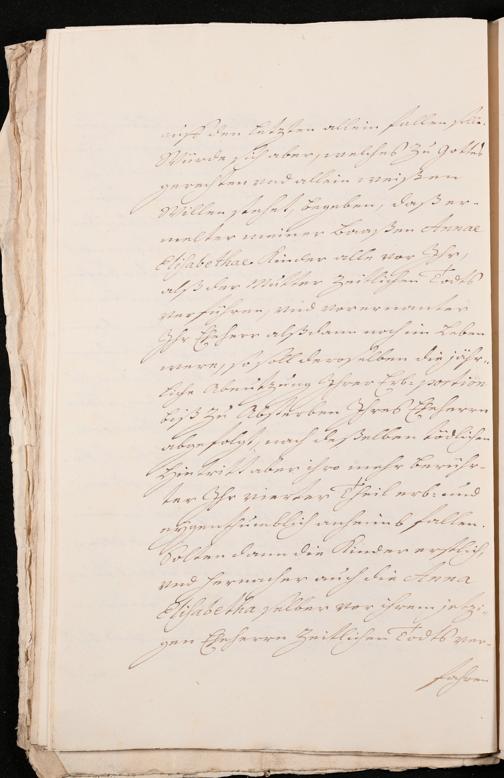 auff den letzten allein fallen solle.
Würde sich aber, welches zu Gottes
gerechten und allein weißen
Willen stehet, begeben, daß er-
melter meiner Baaßen Annae
Elisabethae Kinder alle vor Ihr,
alß der Mutter zeitlichen Todts
verführen, und vorernanter
Ihr Eheherr alßdann noch im Leben
were, so soll deroselben die jähr-
liche Abnützung Ihrer Erbsportion
biß zu Absterben Ihres Eheherrn
abgefolgt, nach deßelben tödlichen
Hintritt aber ihro mehr berühr-
ter Ihr vierter Theil erb: und
eygenthumblich anheimb fallen.
Solten dann die Kinder erstlich,
und hernacher auch die Anna
Elisabetha selber vor ihrem jetzi-
gen Eheherrn zeitlichen Todts ver-
fahren